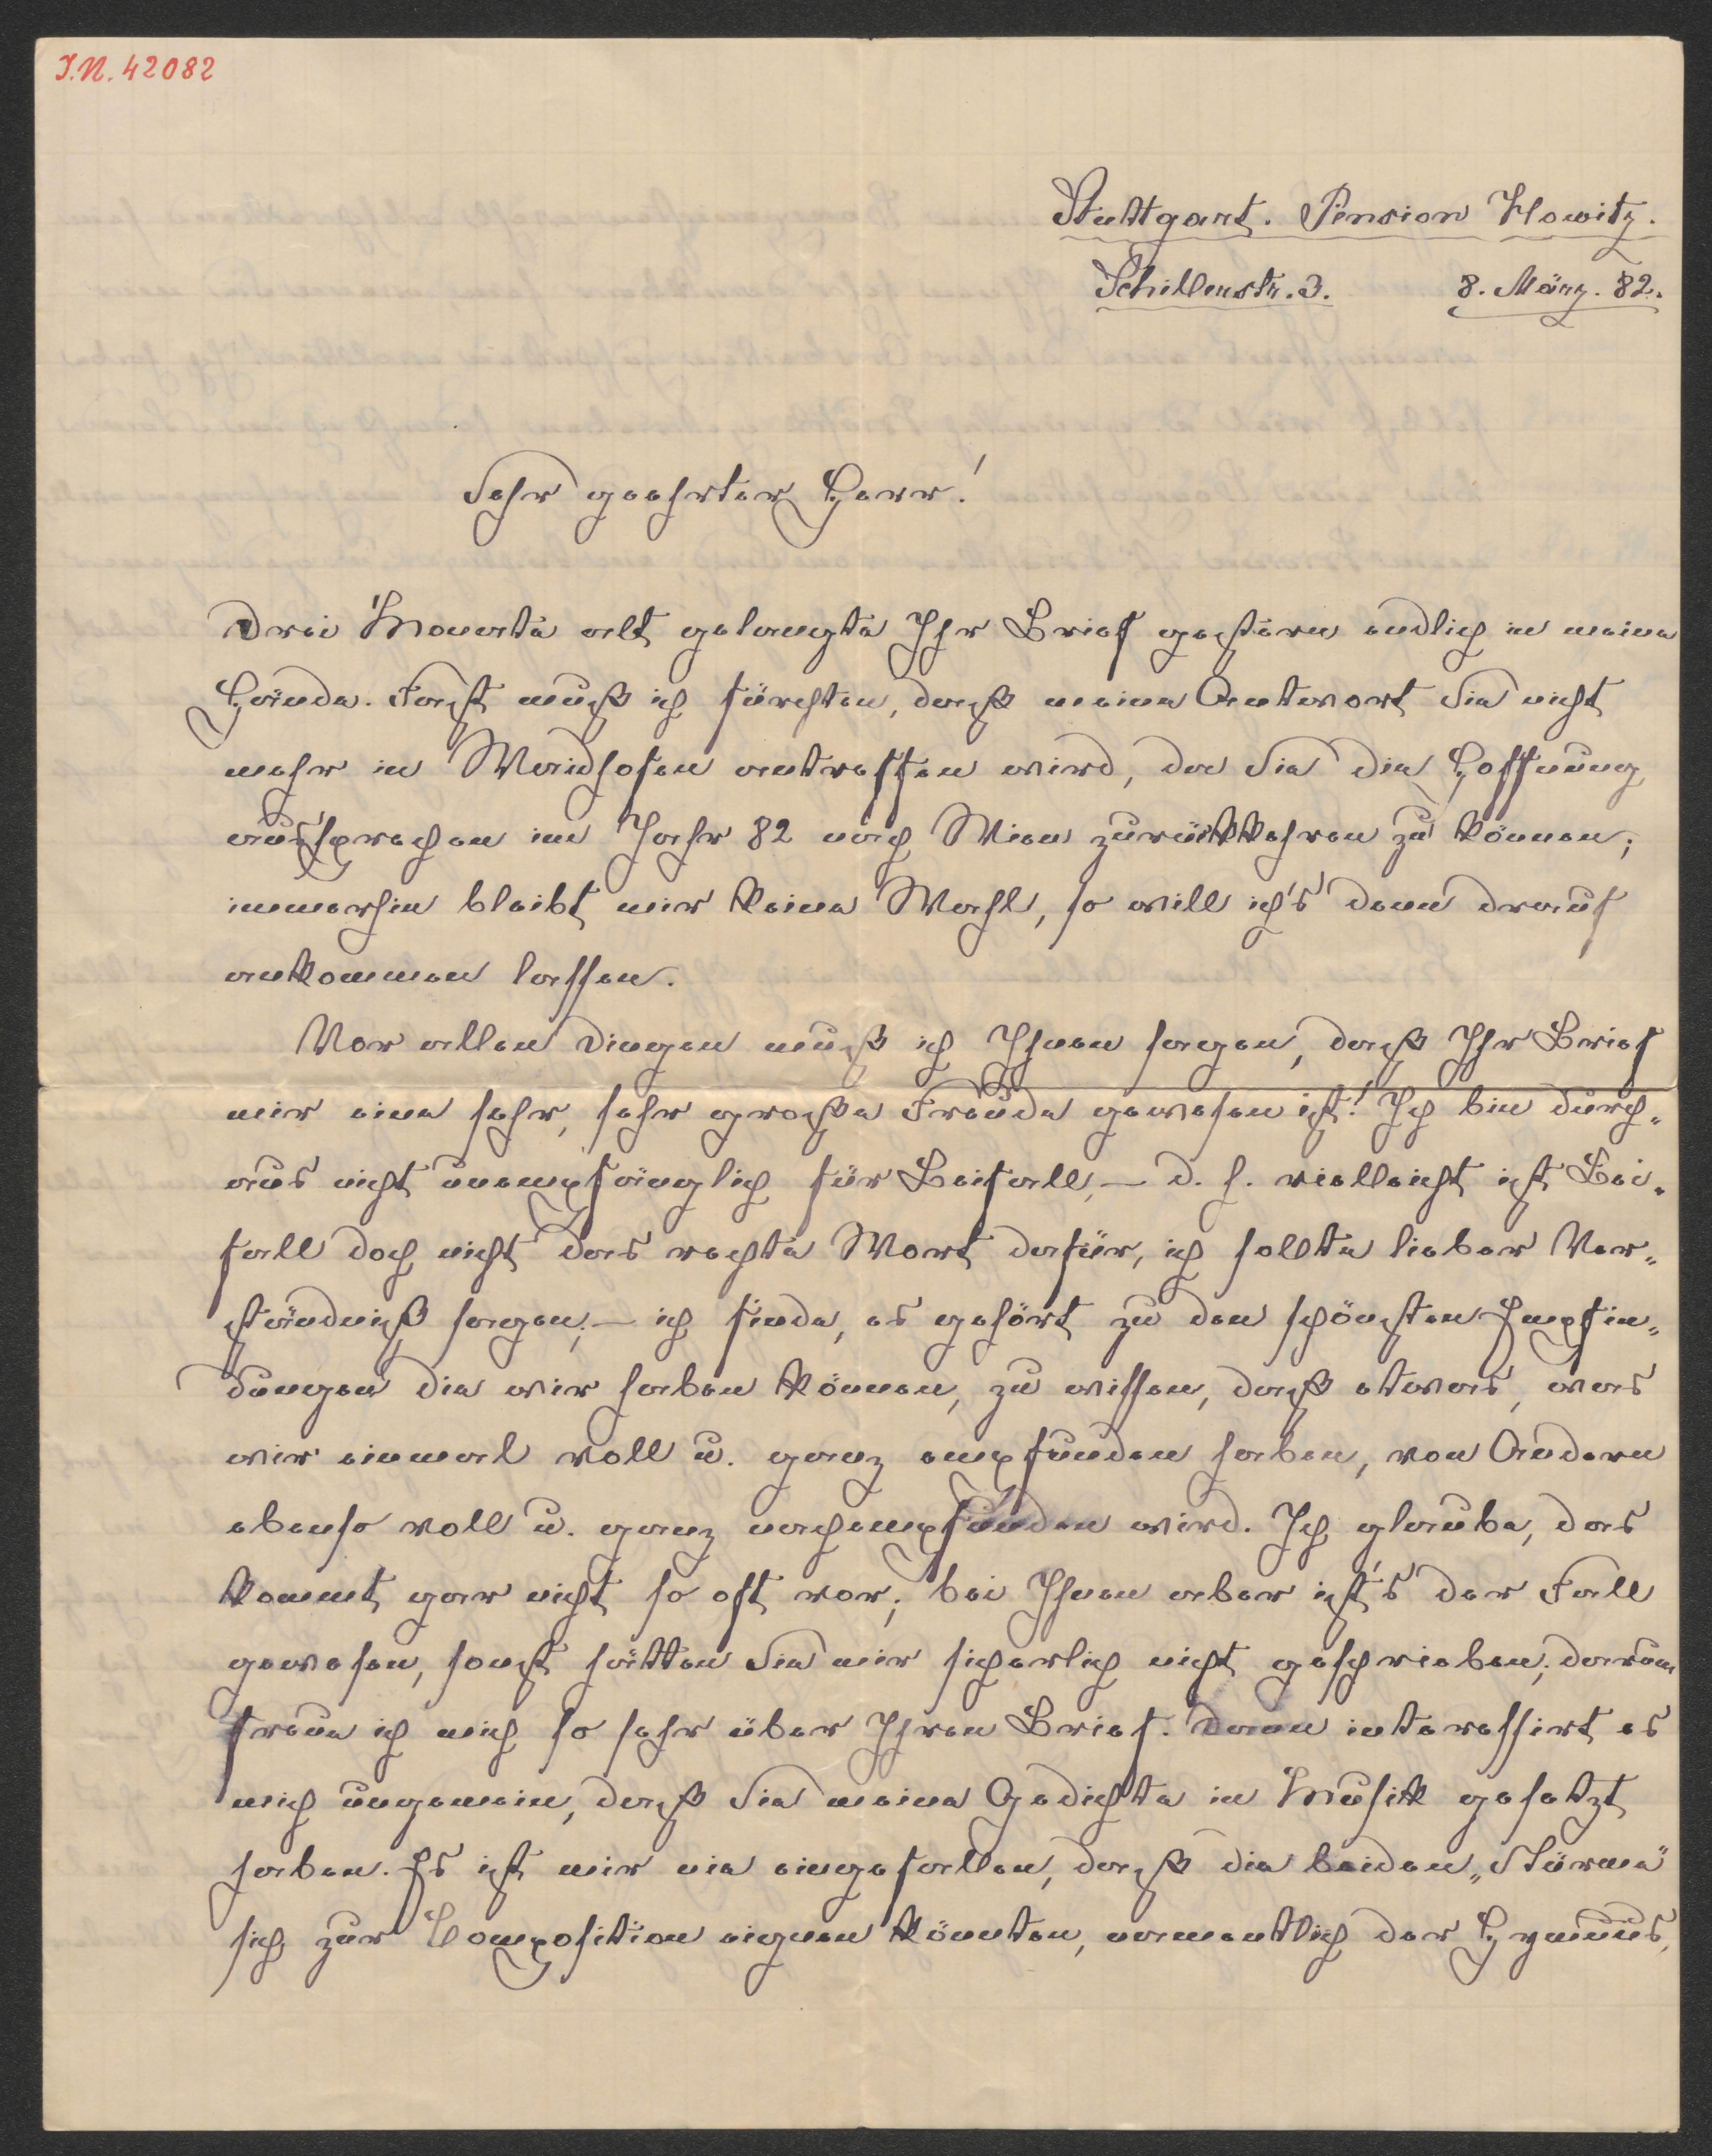 I.N. 42082
Stuttgart. Pension Howitz.
Schillerstr. 3. 8. März. 82.
Sehr geehrter Herr!
Drei Monate alt gelangte Ihr Brief gestern endlich in meine
Hände. Fast muß ich fürchten, daß meine Antwort Sie nicht
mehr in Waidhofen antreffen wird, da Sie die Hoffnung
aussprachen im Jahr 82 nach Wien zurückkehren zu können;
immerhin bleibt mir keine Wahl, so will ich's denn drauf
ankommen lassen.
Vor allen Dingen muß ich Ihnen sagen, daß Ihr Brief
mir eine sehr, sehr große Freude gewesen ist! Ich bin durch„
aus nicht unempfänglich für Beifall, — d. h. vielleicht ist Bei„
fall doch nicht das rechte Wort dafür, ich sollte lieber Ver„
ständniß sagen; — ich finde, es gehört zu den schönsten Empfin„
dungen die wir haben können, zu wissen, daß etwas, was
wir einmal voll u. ganz empfunden haben, von Andern
ebenso voll u. ganz nachempfunden wird. Ich glaube, das
kommt gar nicht so oft vor; bei Ihnen aber ist's der Fall
gewesen, sonst hätten Sie mir sicherlich nicht geschrieben; darum
freue ich mich so sehr über Ihren Brief. Dann interessirt es
mich ungemein, daß Sie meine Gedichte in Musik gesetzt
haben. Es ist mir nie eingefallen, daß die beiden „Stürme"
sich zur Composition eignen könnten, namentlich der Hymnus,